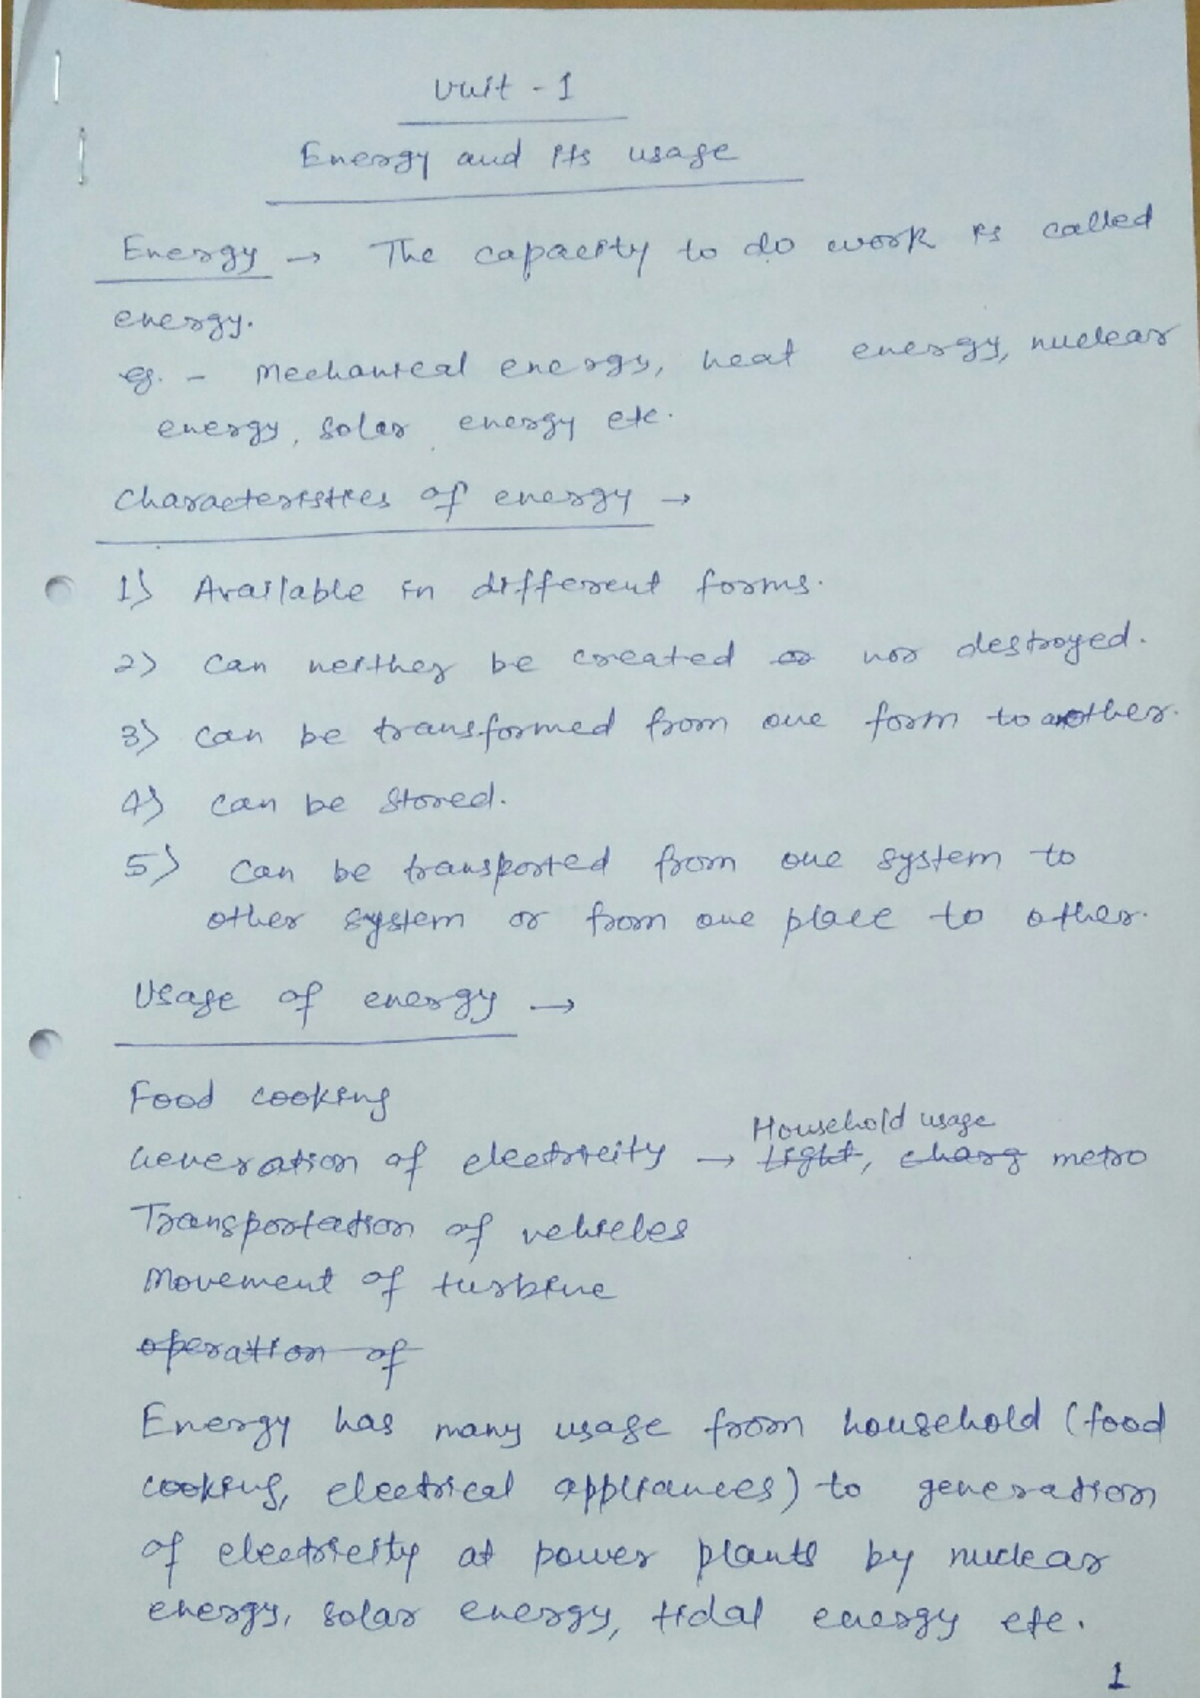 Unit - 1
Energy and its usage
Energy → The capacity to do work is called
energy.
eg. - Mechanical energy, heat energy, nuclear
energy, solar energy etc.
Characteristics of energy →
1) Available in different forms.
2) Can neither be created or nor destroyed.
3) Can be transformed from one form to another.
4) Can be stored.
5) Can be transported from one system to
other system or from one place to other.
Usage of energy →
Food cooking
Household usage
Generation of electricity → Light, charg metro
Transportation of vehicles
Movement of turbine
operation of
Energy has many usage from household (food
cooking, electrical appliances) to generation
of electricity at power plants by nuclear
energy, solar energy, tidal energy etc.
1